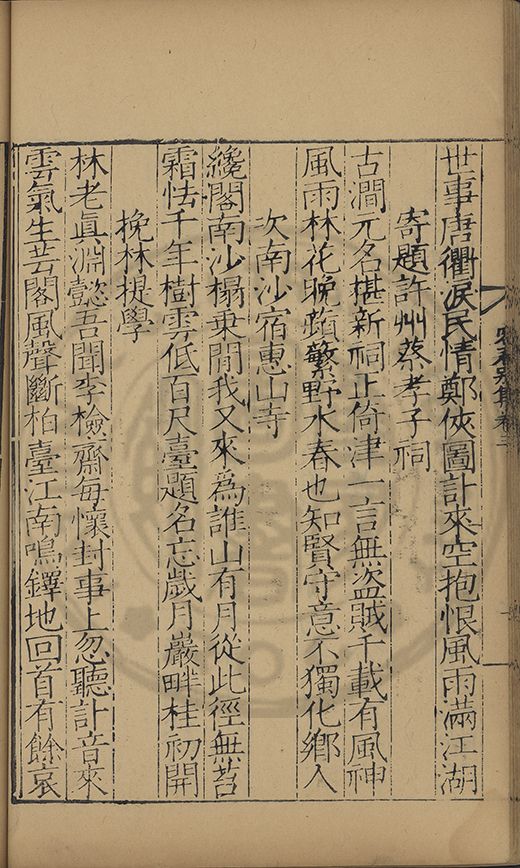 世事唐衢淚民情鄭俠圖計來空抱恨風雨滿江湖
寄題許州蔡孝子祠
古澗元名椹新祠正倚津一言無盜賊千載有風神
風雨林花晚蘋蘩野水春也知賢守意不獨化鄉人
次南沙宿惠山寺
纔閣南沙榻乘閒我又來為誰山有月從此徑無苔
霜怯千年樹雲低百尺臺題名忘歲月巖畔桂初開
挽林提學
林老真淵懿吾聞李檢齋每懷封事上忽聽訃音來
雲氣生芸閣風聲斷柏臺江南鳴鐸地回首有餘哀